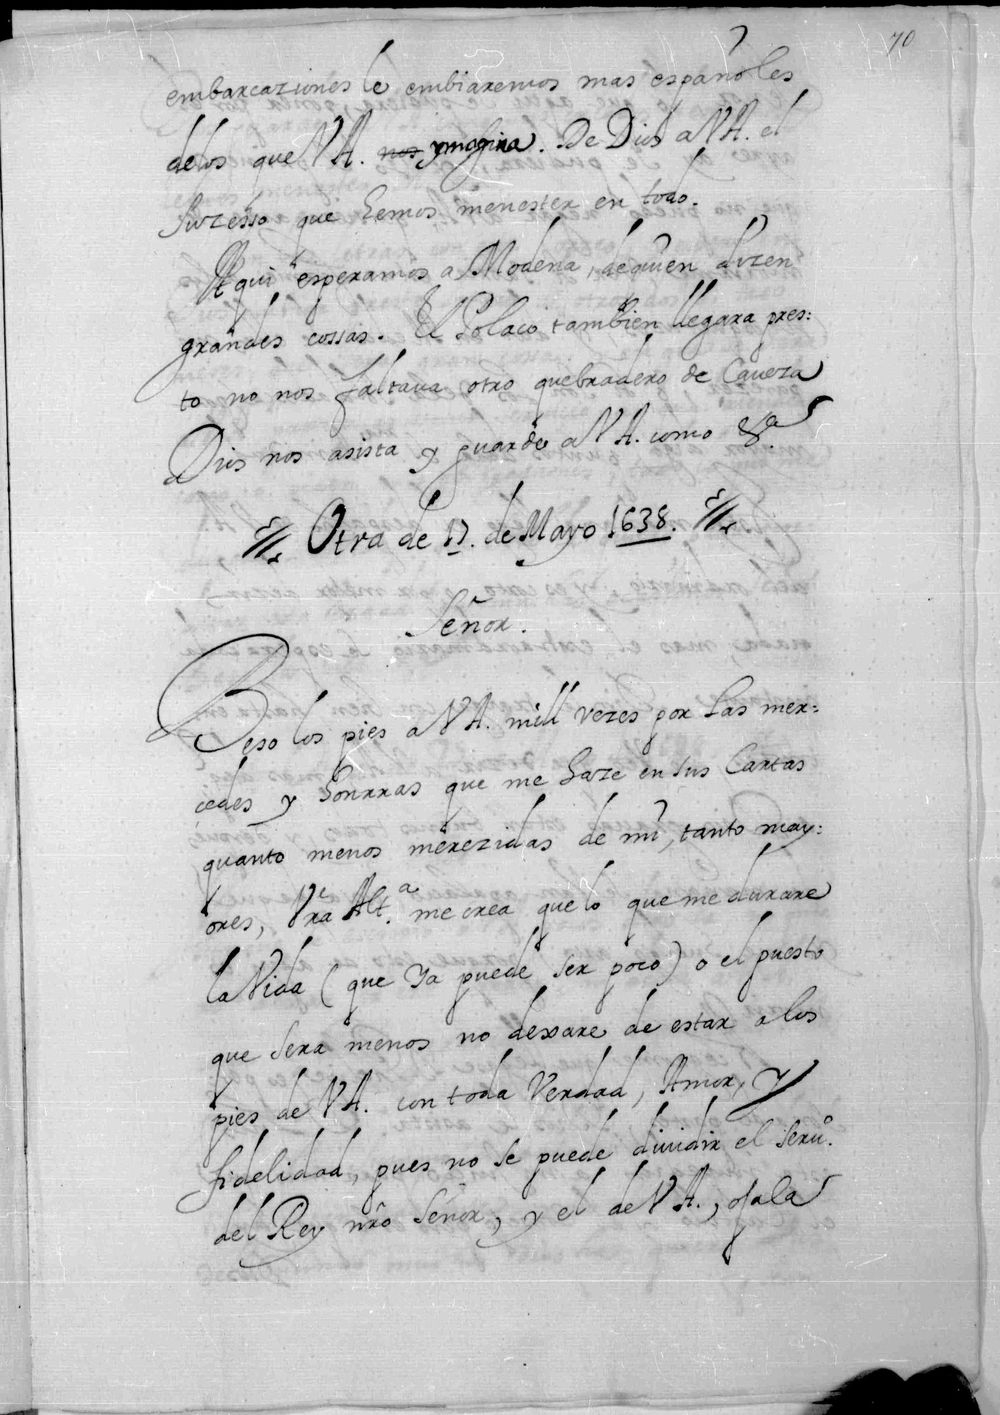 70
embarcaziones le embiaremos mas españoles
delos que VA. nos ymagina. De Dios a VA. el
suzesso que hemos menester en todo.
Aqui esperamos a Modena, dequien dizen
grandes cossas. El Polaco tambien llegara pres:
to no nos faltaua otro quebradero de Caueza
Dios nos asista y guarde a VA. como &a
Otra de 17. de Mayo 1638.
Señor.
Beso los pies a VA. mill vezes por las mer:
cedes y honrras que me haze en sus Cartas
quanto menos merezidas de mi, tanto may:
ores, Vra Alt.a me crea que lo que me durare
la Vida (que ya puede ser poco) o el puesto
que sera menos no dexare de estar a los
pies de VA. con toda Verdad, Amor, y
fidelidad, pues no se puede diuidir el seru.o
del Rey nro Señor, y el de VA., ojala